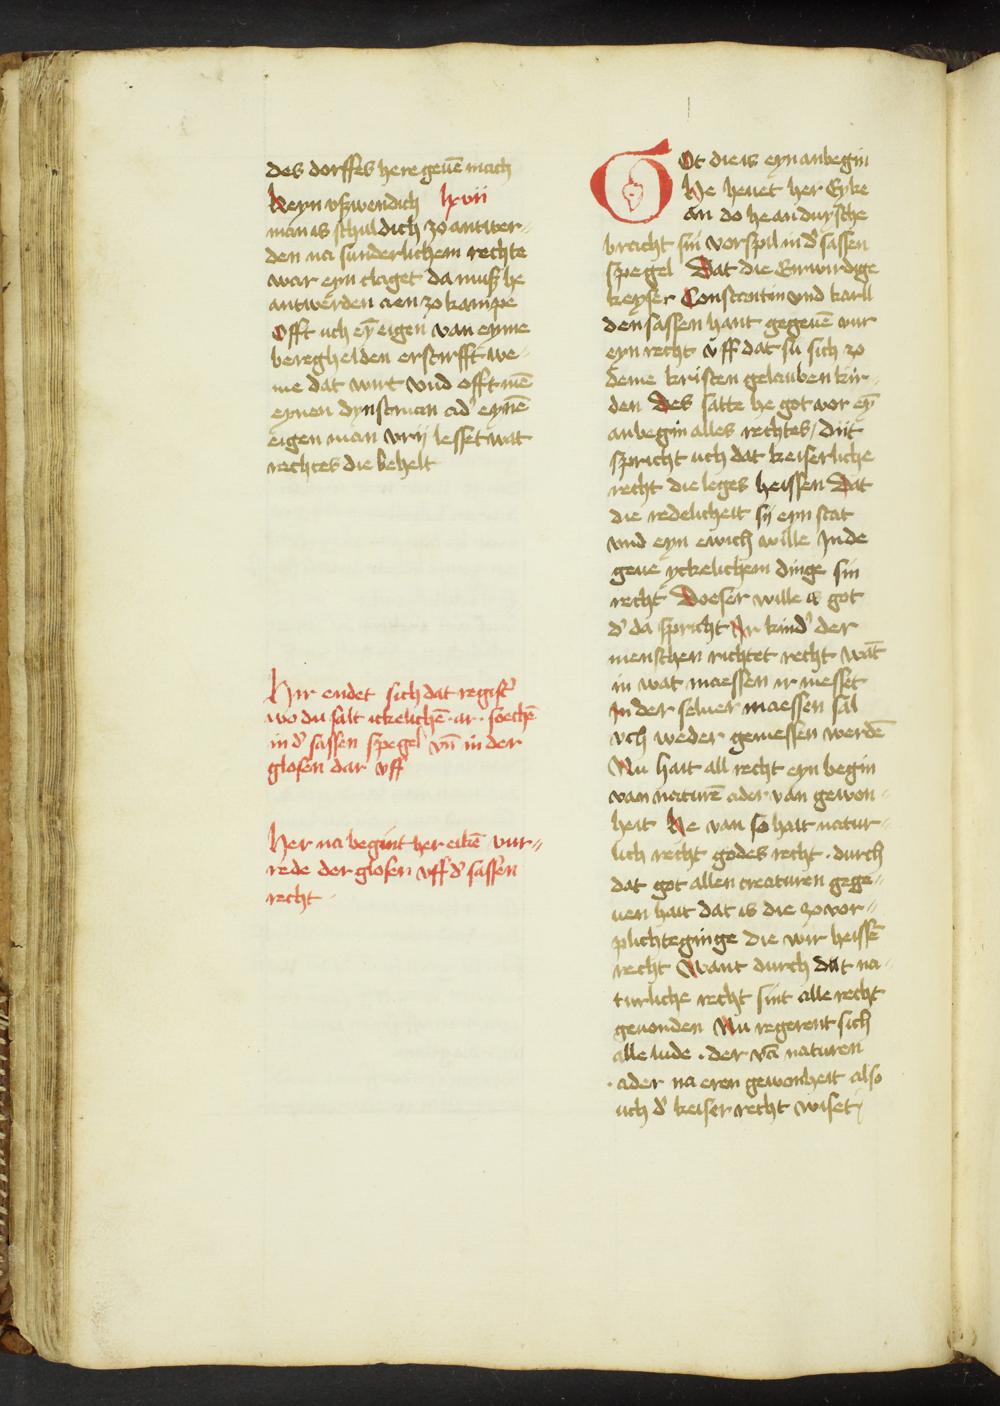 des dorffes here geuē mach
Keyn vßwendich lxvii
man is schuldich zo antwer-
den na sunderlichem rechte
war eyn claget da muß he
antwerden aen zo kampe
Offt uch eȳ eigen van eyme
bereghelden erstirfft we-
me dat wirt vnd offt mē
eynen dynstman ad' eynē
eigen man vrij lesset wat
rechtes die behelt
Hir endet sich dat regist'
wo du salt ickelichē ar. soechē
in d' sassen spegel vn̄ in der
glosen dar vff
Her na begint her eikē vur-
rede der glosen vff d' sassen
recht
GOt die is eyn anbegin
He heuet her Eyke
an do he an duysche
bracht sin vorspil in d' sassen
spegel Dat die Erwirdige
keyser Constantin vnd karll
den sassen hant gegeuē vur
eyn recht vff dat su sich zo
deme kristen gelauben kir-
den Des satte he got vor eȳ
anbegin alles rechtes / diit
spricht uch dat keiserliche
recht die leges heissen Dat
die redelicheit sij eyn stat
vnd eyn ewich wille In de
geue yckelichem dinge sin
recht Doeser wille is got
d' da spricht Ir kind' der
menschen richtet recht wāt
in wat maessen ir messet
In der seluer maessen sal
vch weder gemessen werdē
Nu hait all recht eyn begin
van naturē ader van gewon-
heit He van so hait natur-
lich recht godes recht . durch
dat got allen creaturen gege-
uen hait dat is die zo vor-
plichteginge die wir heissē
recht Want durch dat na-
turliche recht sint alle recht
geuonden Nu regerent sich
alle lude . der vā naturen
. ader na eren gewonheit also
uch d' keiser recht wiset /